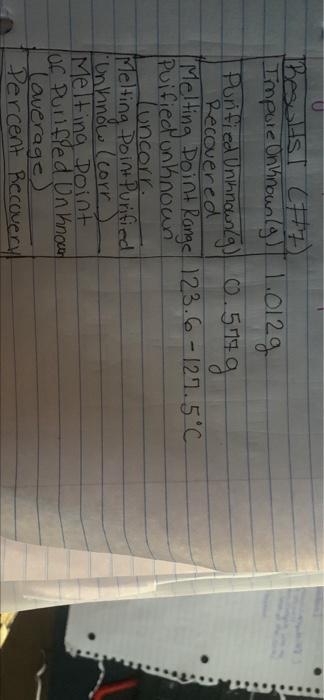 Results (#7)
Impure Unknown (g) 1.012g
Purified Unknown (g) 0.577g
Recovered
Melting Point Range 123.6-127.5°C
Puified unknown
(uncorr.
Melting Point Purified
Unknow (corr)
Melting Point
of Purified Unknown
(average)
Percent Recovery